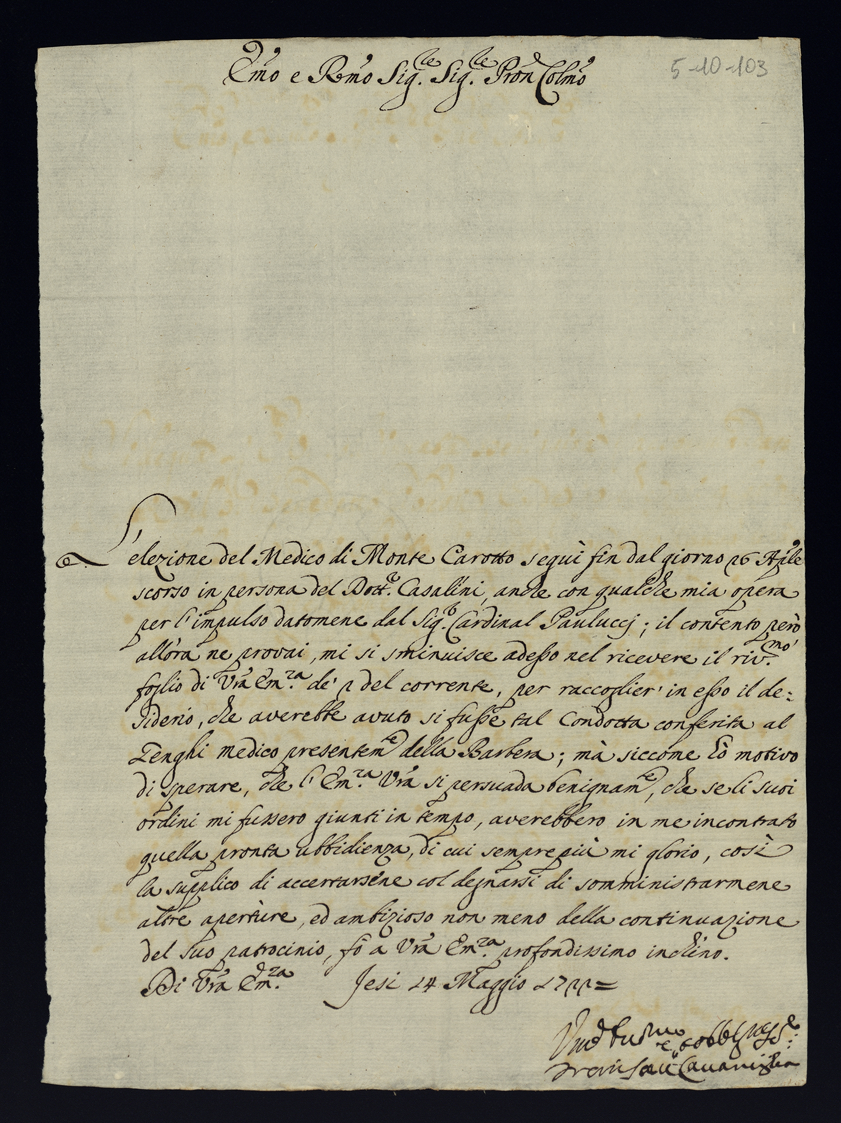 Emo e Rmo Sig.re Sig.re Pron Colmo
5-10-103
L'elezione del Medico di Monte Carotto seguì fin dal giorno 26 Aple
scorso in persona del Dott.r Casalini, anche con qualche mia opera
per l'impulso datomene dal Sig.r Cardinal Paulucci; il contento però
allora ne provai, mi si sminuisce adesso nel ricevere il riv.mo
foglio di Vra Em.za de' 2 del corrente, per raccoglier' in esso il de:
siderio, che averebbe avuto si fusse tal Condotta conferita al
Tenghi medico presentem.e della Barbera; mà siccome hò motivo
di sperare, che l'Em.za Vra si persuada benignam.e, che se li suoi
ordini mi fussero giunti in tempo, averebbero in me incontrato
quella pronta ubbidienza, di cui sempre più mi glorio, così
la supplico di accertarsene col degnarsi di somministrarmene
altre aperture, ed ambizioso non meno della continuazione
del suo patrocinio, fò a Vra Em.za profondissimo inchino.
Di Vra Em.za Jesi 14 Maggio 1722=